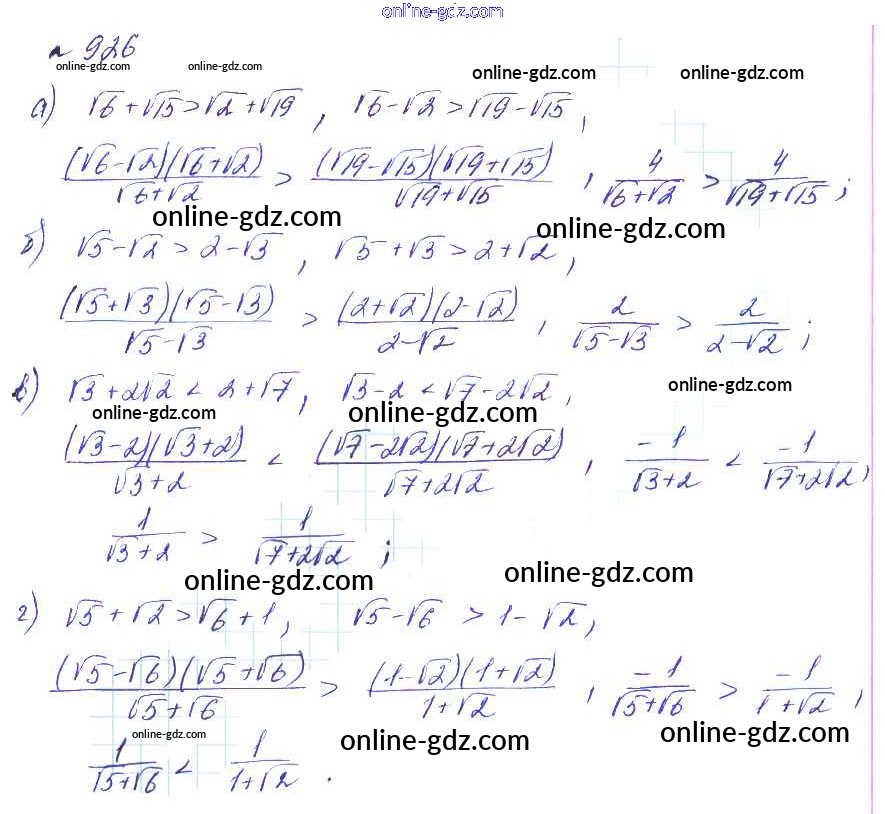 online-gdz.com
№ 926
online-gdz.com online-gdz.com online-gdz.com online-gdz.com
а) √6 + √15 > √2 + √19, √6 - √2 > √19 - √15,
(√6 - √2)(√6 + √2) / (√6 + √2) > (√19 - √15)(√19 + √15) / (√19 + √15), 4 / (√6 + √2) > 4 / (√19 + √15);
online-gdz.com online-gdz.com
б) √5 - √2 > 2 - √3, √5 + √3 > 2 + √2,
(√5 + √3)(√5 - √3) / (√5 - √3) > (2 + √2)(2 - √2) / (2 - √2), 2 / (√5 - √3) > 2 / (2 - √2);
в) √3 + 2√2 < 2 + √7, √3 - 2 < √7 - 2√2, online-gdz.com
online-gdz.com online-gdz.com
(√3 - 2)(√3 + 2) / (√3 + 2) < (√7 - 2√2)(√7 + 2√2) / (√7 + 2√2), -1 / (√3 + 2) < -1 / (√7 + 2√2),
1 / (√3 + 2) > 1 / (√7 + 2√2);
online-gdz.com online-gdz.com
г) √5 + √2 > √6 + 1, √5 - √6 > 1 - √2,
(√5 - √6)(√5 + √6) / (√5 + √6) > (1 - √2)(1 + √2) / (1 + √2), -1 / (√5 + √6) > -1 / (1 + √2),
online-gdz.com online-gdz.com online-gdz.com
1 / (√5 + √6) < 1 / (1 + √2).